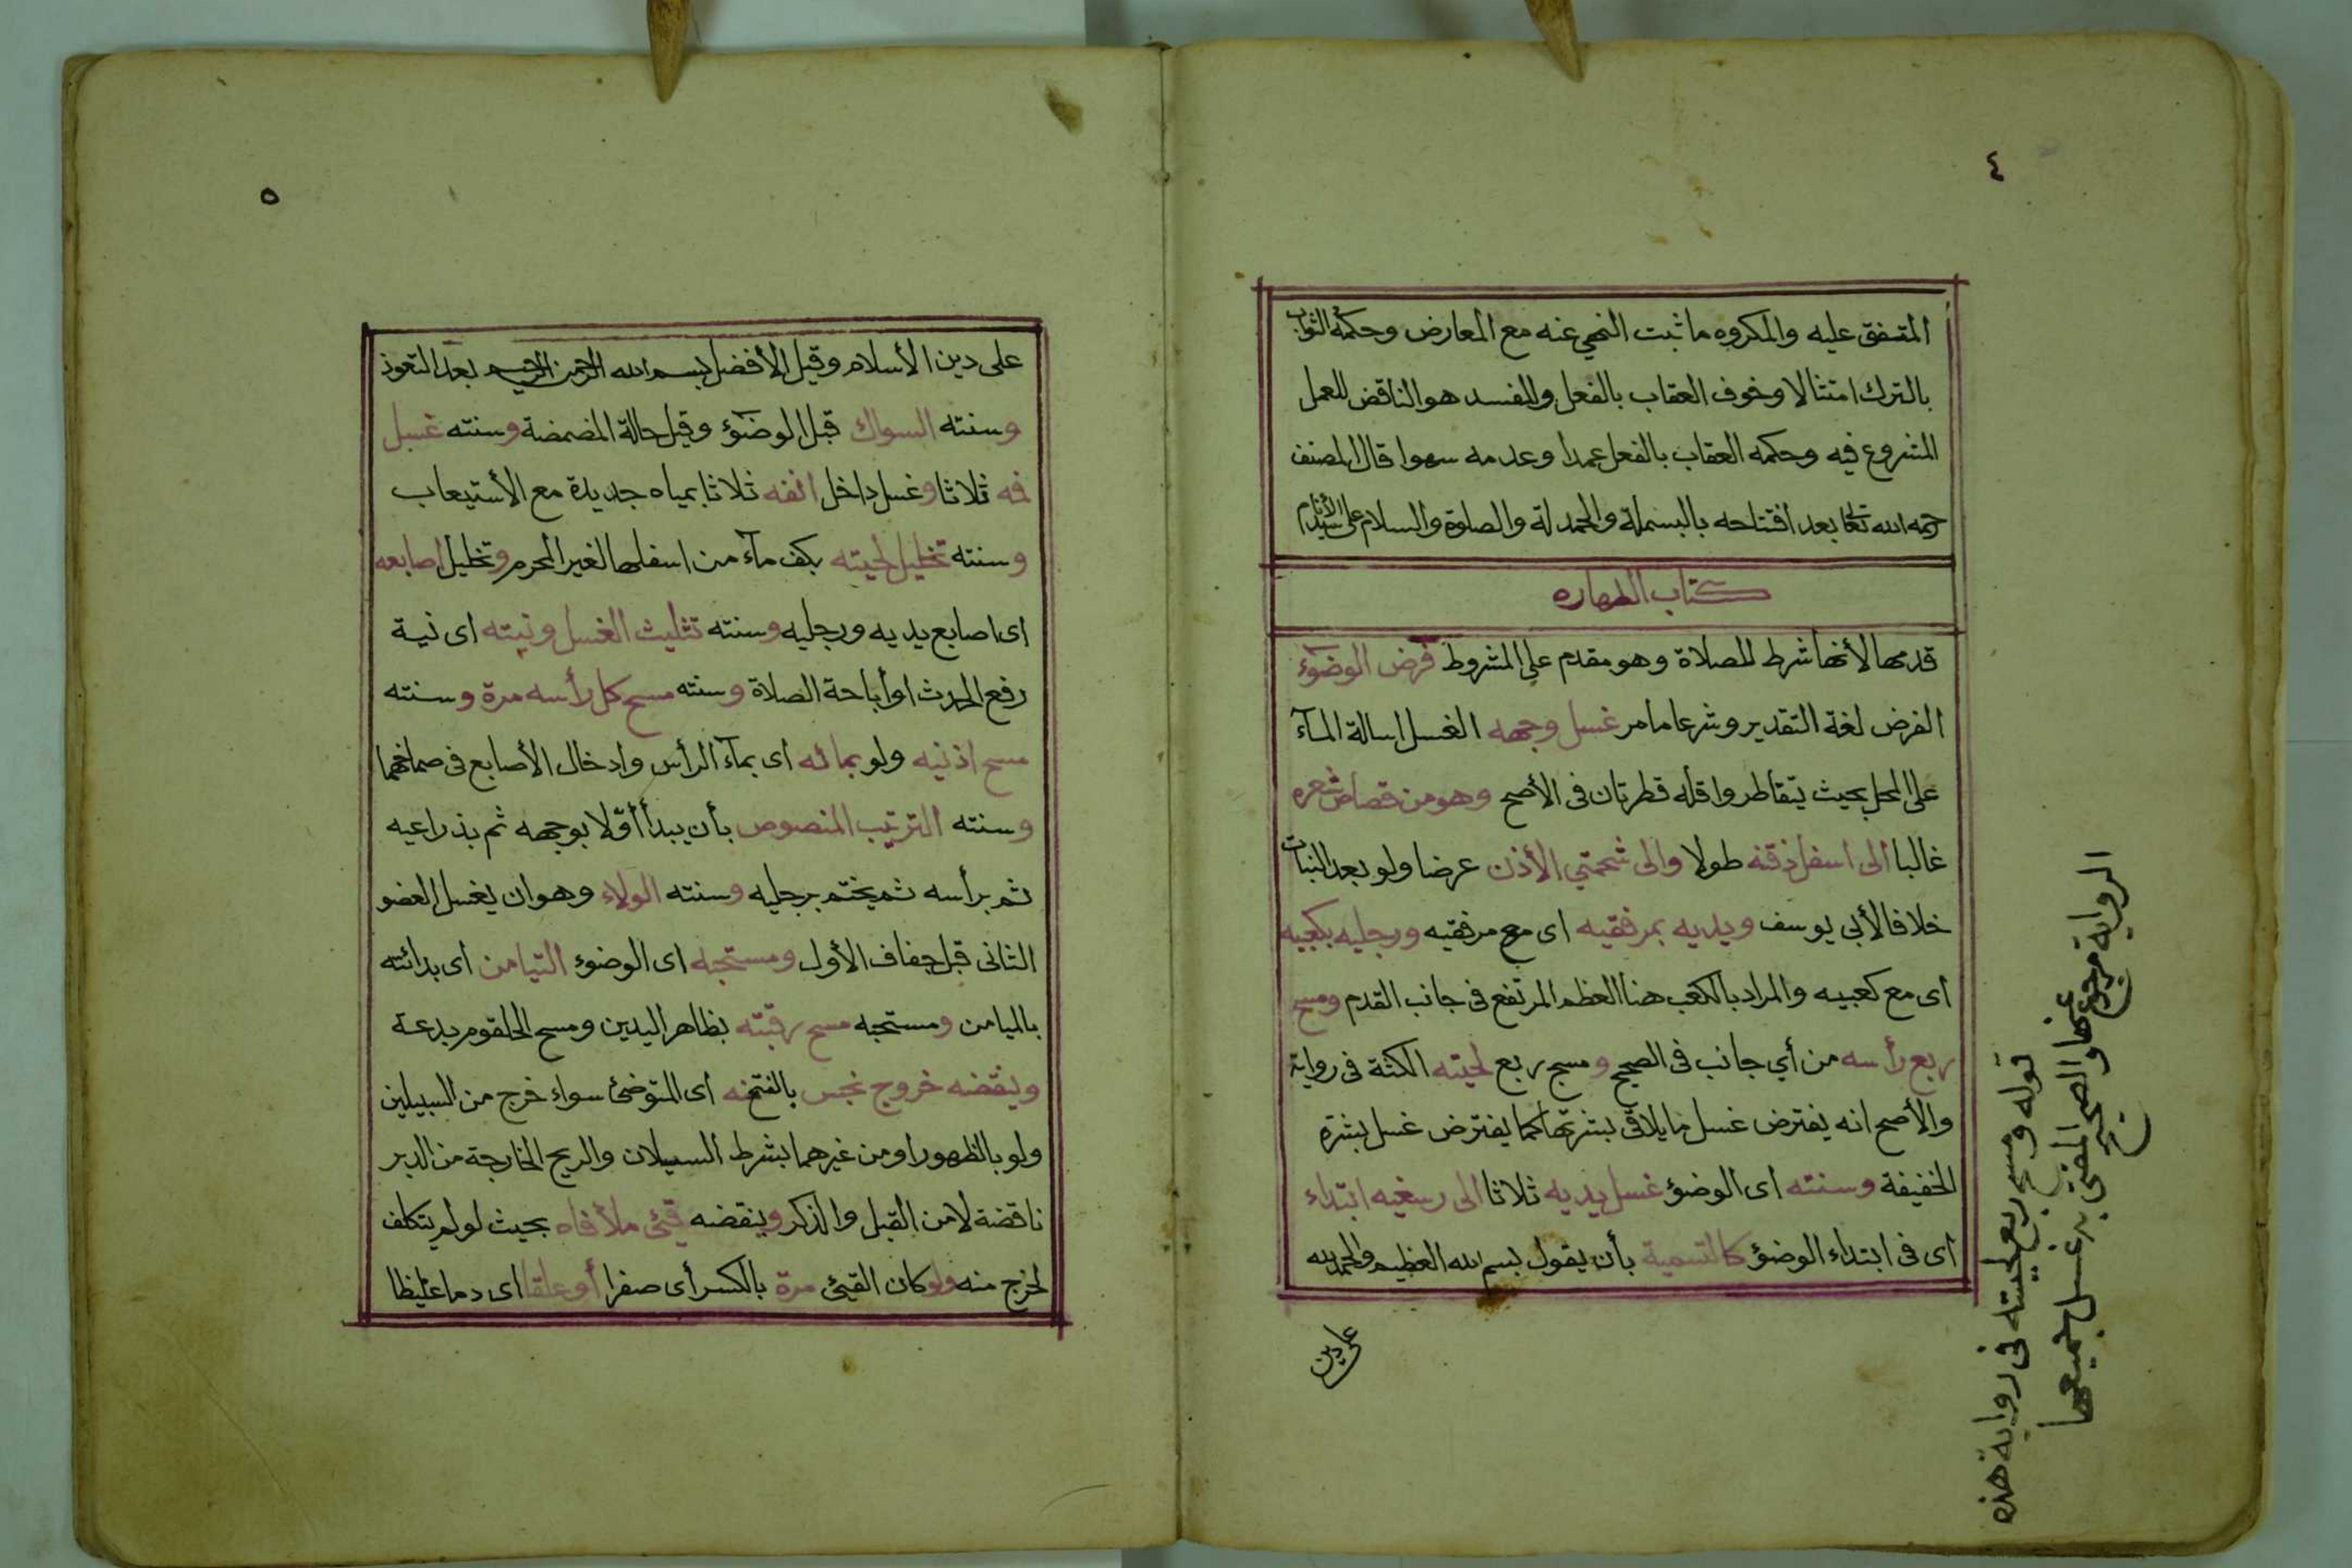 ٤
المتفق عليه والمكروه ما ثبت النهى عنه مع المعارض وحكمه الثواب
بالترك امتثالا وخوف العقاب بالفعل والمفسد هو الناقض للعمل
المشروع فيه وحكمه العقاب بالفعل عمدا وعدمه سهوا قال المصنف
رحمه الله تعالى بعد افتتاحه بالبسملة والحمدلة والصلوة والسلام على سيد الأنام
كتاب الطهاره
قدمها لأنها شرط للصلاة وهو مقدم على المشروط فرض الوضوء
الفرض لغة التقدير وشرعا ما مر غسل وجهه الغسل اسالة المآء
على المحل بحيث يتقاطر واقله قطرتان فى الأصح وهو من قصاص شعره
غالبا الى اسفل ذقنه طولا والى شحمتي الأذن عرضا ولو بعد النبات
خلافا لأبى يوسف ويديه بمرفقيه اى مع مرفقيه ورجليه بكعبيه
اى مع كعبيه والمراد بالكعب هنا العظم المرتفع فى جانب القدم ومسح
ربع رأسه من أي جانب فى الصحيح ومسح ربع لحيته الكثة فى رواية
والأصح انه يفترض غسل ما يلاقى بشرتها كما يفترض غسل بشرة
الخفيفة وسنته اى الوضوء غسل يديه ثلاثا الى رسغيه ابتداء
اى فى ابتداء الوضوء كالتسمية بأن يقول بسم الله العظيم والحمد لله
على دين
قوله ومسح ربع لحيته فى رواية هذه
الرواية مرجوع
عنها والصحيح المفتى به غسل جميعها
٥
على دين الأسلام وقيل الأفضل بسم الله الرحمن الرحيم بعد التعوذ
وسنته السواك قبل الوضوء وقيل حالة المضمضة وسنته غسل
فه ثلاثا وغسل داخل انفه ثلاثا بمياه جديدة مع الأستيعاب
وسنته تخليل لحيته بكف مآء من اسفلها لغير المحرم وتخليل اصابعه
اى اصابع يديه ورجليه وسنته تثليث الغسل ونيته اى نية
رفع الحدث او أباحة الصلاة وسنته مسح كل رأسه مرة وسنته
مسح اذنيه ولو بمائه اى بمآء الرأس وادخال الأصابع فى صماخهما
وسنته الترتيب المنصوص بأن يبدأ أولا بوجهه ثم بذراعيه
ثم برأسه ثم يختم برجليه وسنته الولاء وهو ان يغسل العضو
الثانى قبل جفاف الأول ومستحبه اى الوضوء التيامن اى بدائته
بالميامن ومستحبه مسح رقبته بظاهر اليدين ومسح الحلقوم بدعة
وينقضه خروج نجس بالفتح منه اى المتوضئ سواء خرج من السبيلين
ولو بالظهور او من غيرهما بشرط السيلان والريح الخارجة من الدبر
ناقضة لا من القبل والذكر وينقضه قيئ ملأ فاه بحيث لو لم يتكلف
لخرج منه ولو كان القيئ مرة بالكسر أى صفرا أو علقا اى دما غليظا